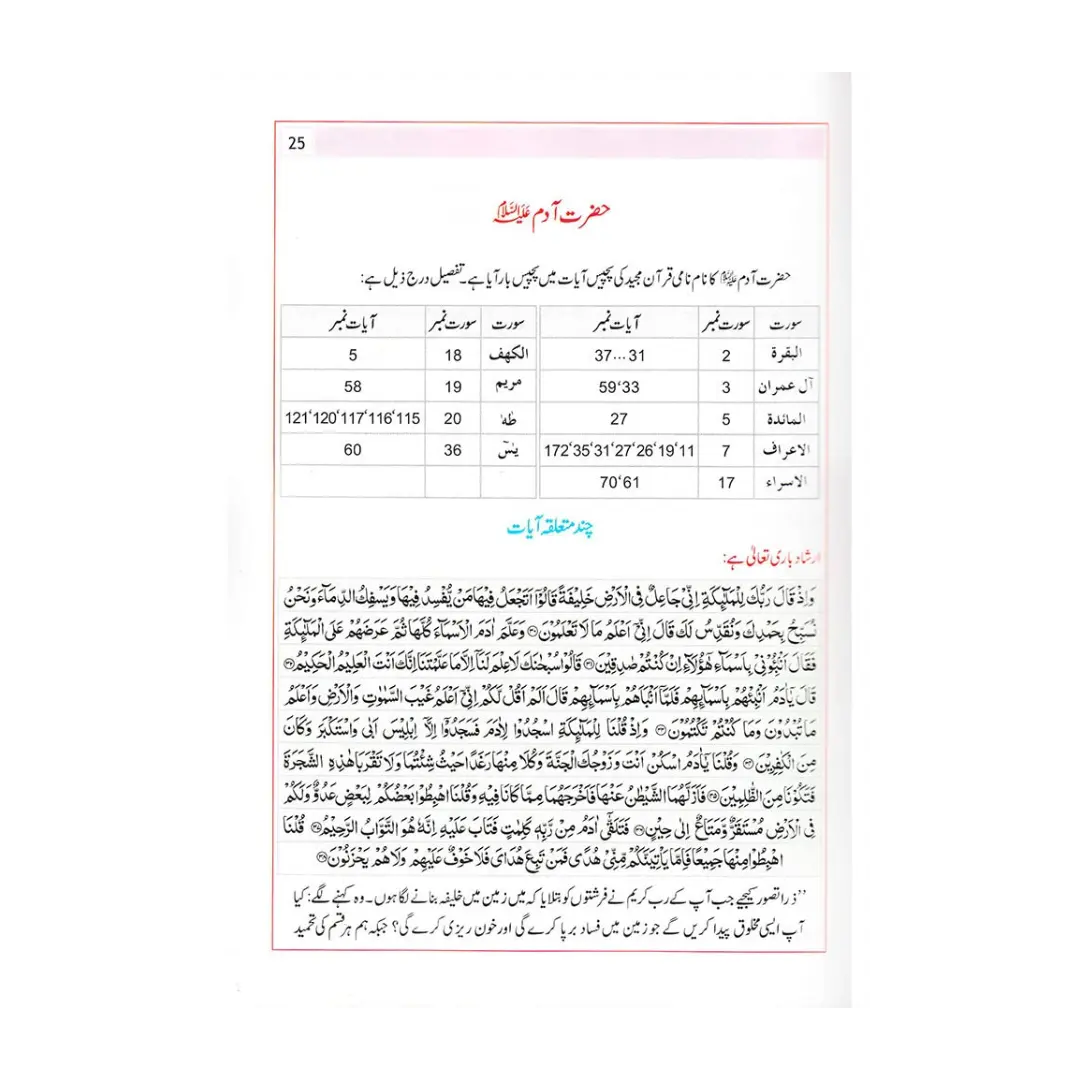 25
حضرت آدم علیہ السلام
حضرت آدم علیہ السلام کا نام نامی قرآن مجید کی پچیس آیات میں پچیس بار آیا ہے۔ تفصیل درج ذیل ہے:
سورت سورت نمبر آیات نمبر سورت سورت نمبر آیات نمبر
البقرة 2 31...37 الکهف 18 5
آل عمران 3 33‘59 مریم 19 58
المائدة 5 27 طٰهٰ 20 115‘116‘117‘120‘121
الاعراف 7 11‘19‘26‘27‘31‘35‘172 یٰسٓ 36 60
الاسراء 17 61‘70
چند متعلقہ آیات
ارشاد باری تعالیٰ ہے:
وَاِذْ قَالَ رَبُّكَ لِلْمَلٰٓىِٕكَةِ اِنِّیْ جَاعِلٌ فِی الْاَرْضِ خَلِیْفَةً قَالُوْٓا اَتَجْعَلُ فِیْهَا مَنْ یُّفْسِدُ فِیْهَا وَیَسْفِكُ الدِّمَآءَ وَنَحْنُ
نُسَبِّحُ بِحَمْدِكَ وَنُقَدِّسُ لَكَ قَالَ اِنِّیْٓ اَعْلَمُ مَا لَا تَعْلَمُوْنَ۝۳۰ وَعَلَّمَ اٰدَمَ الْاَسْمَآءَ كُلَّهَا ثُمَّ عَرَضَهُمْ عَلَی الْمَلٰٓىِٕكَةِ
فَقَالَ اَنْۢبِـُٔوْنِیْ بِاَسْمَآءِ هٰٓؤُلَآءِ اِنْ كُنْتُمْ صٰدِقِیْنَ۝۳۱ قَالُوْا سُبْحٰنَكَ لَا عِلْمَ لَنَآ اِلَّا مَا عَلَّمْتَنَا اِنَّكَ اَنْتَ الْعَلِیْمُ الْحَكِیْمُ۝۳۲
قَالَ یٰٓاٰدَمُ اَنْۢبِئْهُمْ بِاَسْمَآىِٕهِمْ فَلَمَّآ اَنْۢبَاَهُمْ بِاَسْمَآىِٕهِمْ قَالَ اَلَمْ اَقُلْ لَّكُمْ اِنِّیْٓ اَعْلَمُ غَیْبَ السَّمٰوٰتِ وَالْاَرْضِ وَاَعْلَمُ
مَا تُبْدُوْنَ وَمَا كُنْتُمْ تَكْتُمُوْنَ۝۳۳ وَاِذْ قُلْنَا لِلْمَلٰٓىِٕكَةِ اسْجُدُوْا لِاٰدَمَ فَسَجَدُوْٓا اِلَّآ اِبْلِیْسَ اَبٰی وَاسْتَكْبَرَ وَكَانَ
مِنَ الْكٰفِرِیْنَ۝۳۴ وَقُلْنَا یٰٓاٰدَمُ اسْكُنْ اَنْتَ وَزَوْجُكَ الْجَنَّةَ وَكُلَا مِنْهَا رَغَدًا حَیْثُ شِئْتُمَا وَلَا تَقْرَبَا هٰذِهِ الشَّجَرَةَ
فَتَكُوْنَا مِنَ الظّٰلِمِیْنَ۝۳۵ فَاَزَلَّهُمَا الشَّیْطٰنُ عَنْهَا فَاَخْرَجَهُمَا مِمَّا كَانَا فِیْهِ وَقُلْنَا اهْبِطُوْا بَعْضُكُمْ لِبَعْضٍ عَدُوٌّ وَلَكُمْ
فِی الْاَرْضِ مُسْتَقَرٌّ وَّمَتَاعٌ اِلٰی حِیْنٍ۝۳۶ فَتَلَقّٰٓی اٰدَمُ مِنْ رَّبِّهٖ كَلِمٰتٍ فَتَابَ عَلَیْهِ اِنَّهٗ هُوَ التَّوَّابُ الرَّحِیْمُ۝۳۷ قُلْنَا
اهْبِطُوْا مِنْهَا جَمِیْعًا فَاِمَّا یَاْتِیَنَّكُمْ مِّنِّیْ هُدًی فَمَنْ تَبِعَ هُدَایَ فَلَا خَوْفٌ عَلَیْهِمْ وَلَا هُمْ یَحْزَنُوْنَ۝۳۸
’’ذرا تصور کیجیے جب آپ کے رب کریم نے فرشتوں کو بتلایا کہ میں زمین میں خلیفہ بنانے لگا ہوں۔ وہ کہنے لگے: کیا
آپ ایسی مخلوق پیدا کریں گے جو زمین میں فساد برپا کرے گی اور خون ریزی کرے گی؟ جبکہ ہم ہر قسم کی تحمید